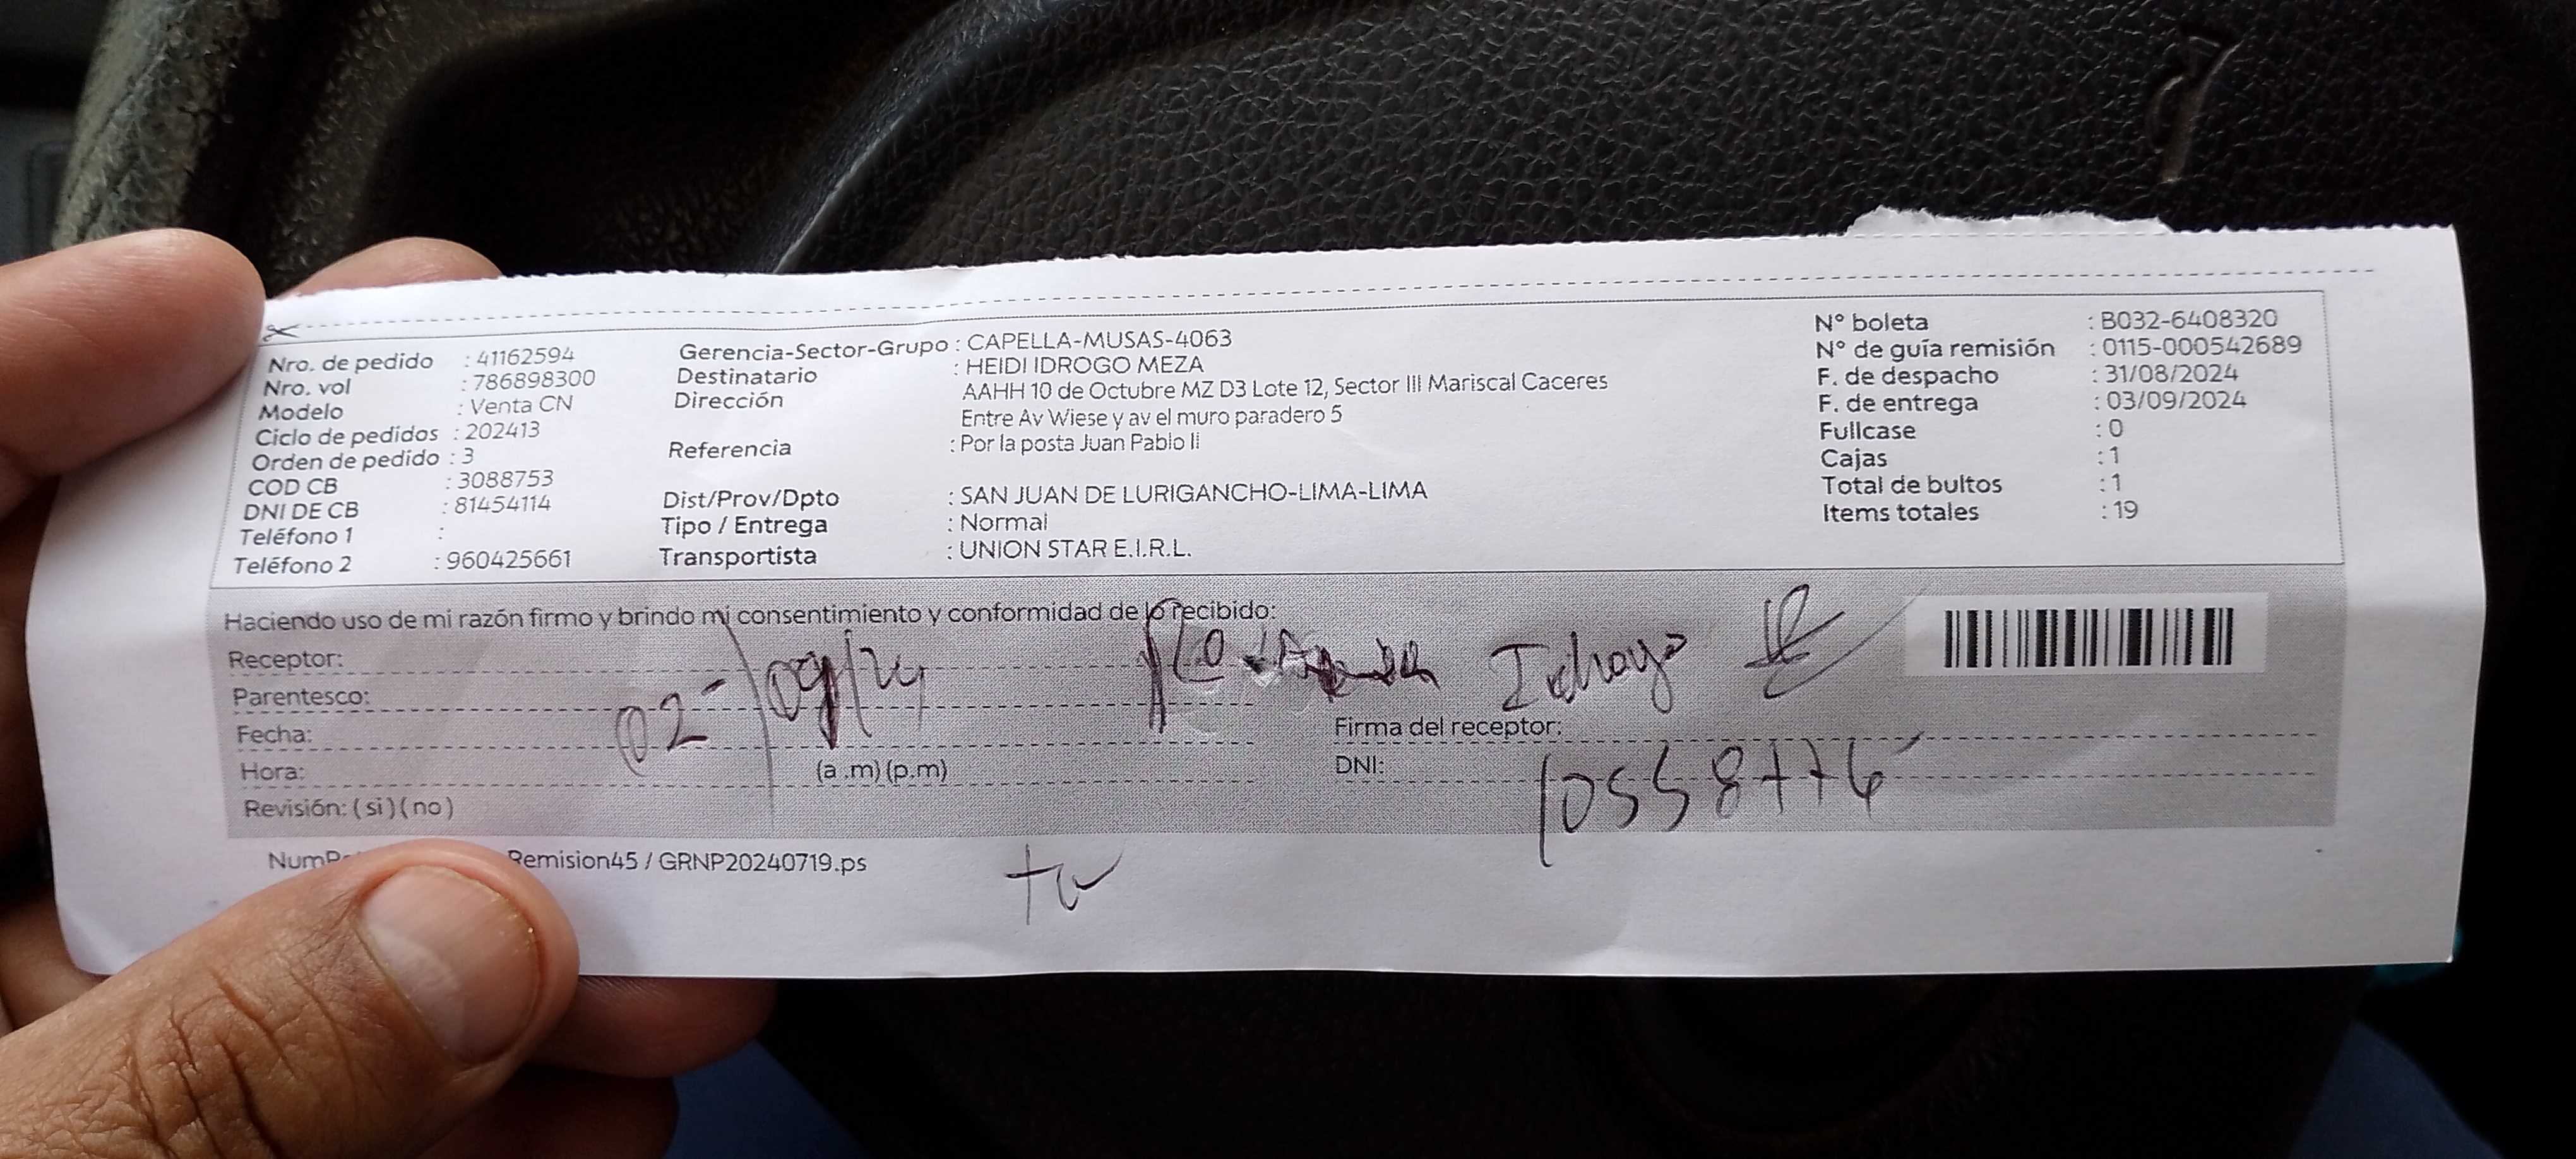 Nro. de pedido : 41162594
Nro. vol : 786898300
Modelo : Venta CN
Ciclo de pedidos : 202413
Orden de pedido : 3
COD CB : 3088753
DNI DE CB : 81454114
Teléfono 1 :
Teléfono 2 : 960425661
Gerencia-Sector-Grupo : CAPELLA-MUSAS-4063
Destinatario : HEIDI IDROGO MEZA
Dirección AAHH 10 de Octubre MZ D3 Lote 12, Sector III Mariscal Caceres
Entre Av Wiese y av el muro paradero 5
Referencia : Por la posta Juan Pablo Ii
Dist/Prov/Dpto : SAN JUAN DE LURIGANCHO-LIMA-LIMA
Tipo / Entrega : Normal
Transportista : UNION STAR E.I.R.L.
N° boleta : B032-6408320
N° de guía remisión : 0115-000542689
F. de despacho : 31/08/2024
F. de entrega : 03/09/2024
Fullcase : 0
Cajas : 1
Total de bultos : 1
Items totales : 19
Haciendo uso de mi razón firmo y brindo mi consentimiento y conformidad de lo recibido:
Receptor:
Parentesco:
Fecha: 02-/09/24
Hora: (a .m) (p.m)
Revisión: ( si ) ( no )
Idrogo
Firma del receptor:
DNI: 10558776
Remision45 / GRNP20240719.ps